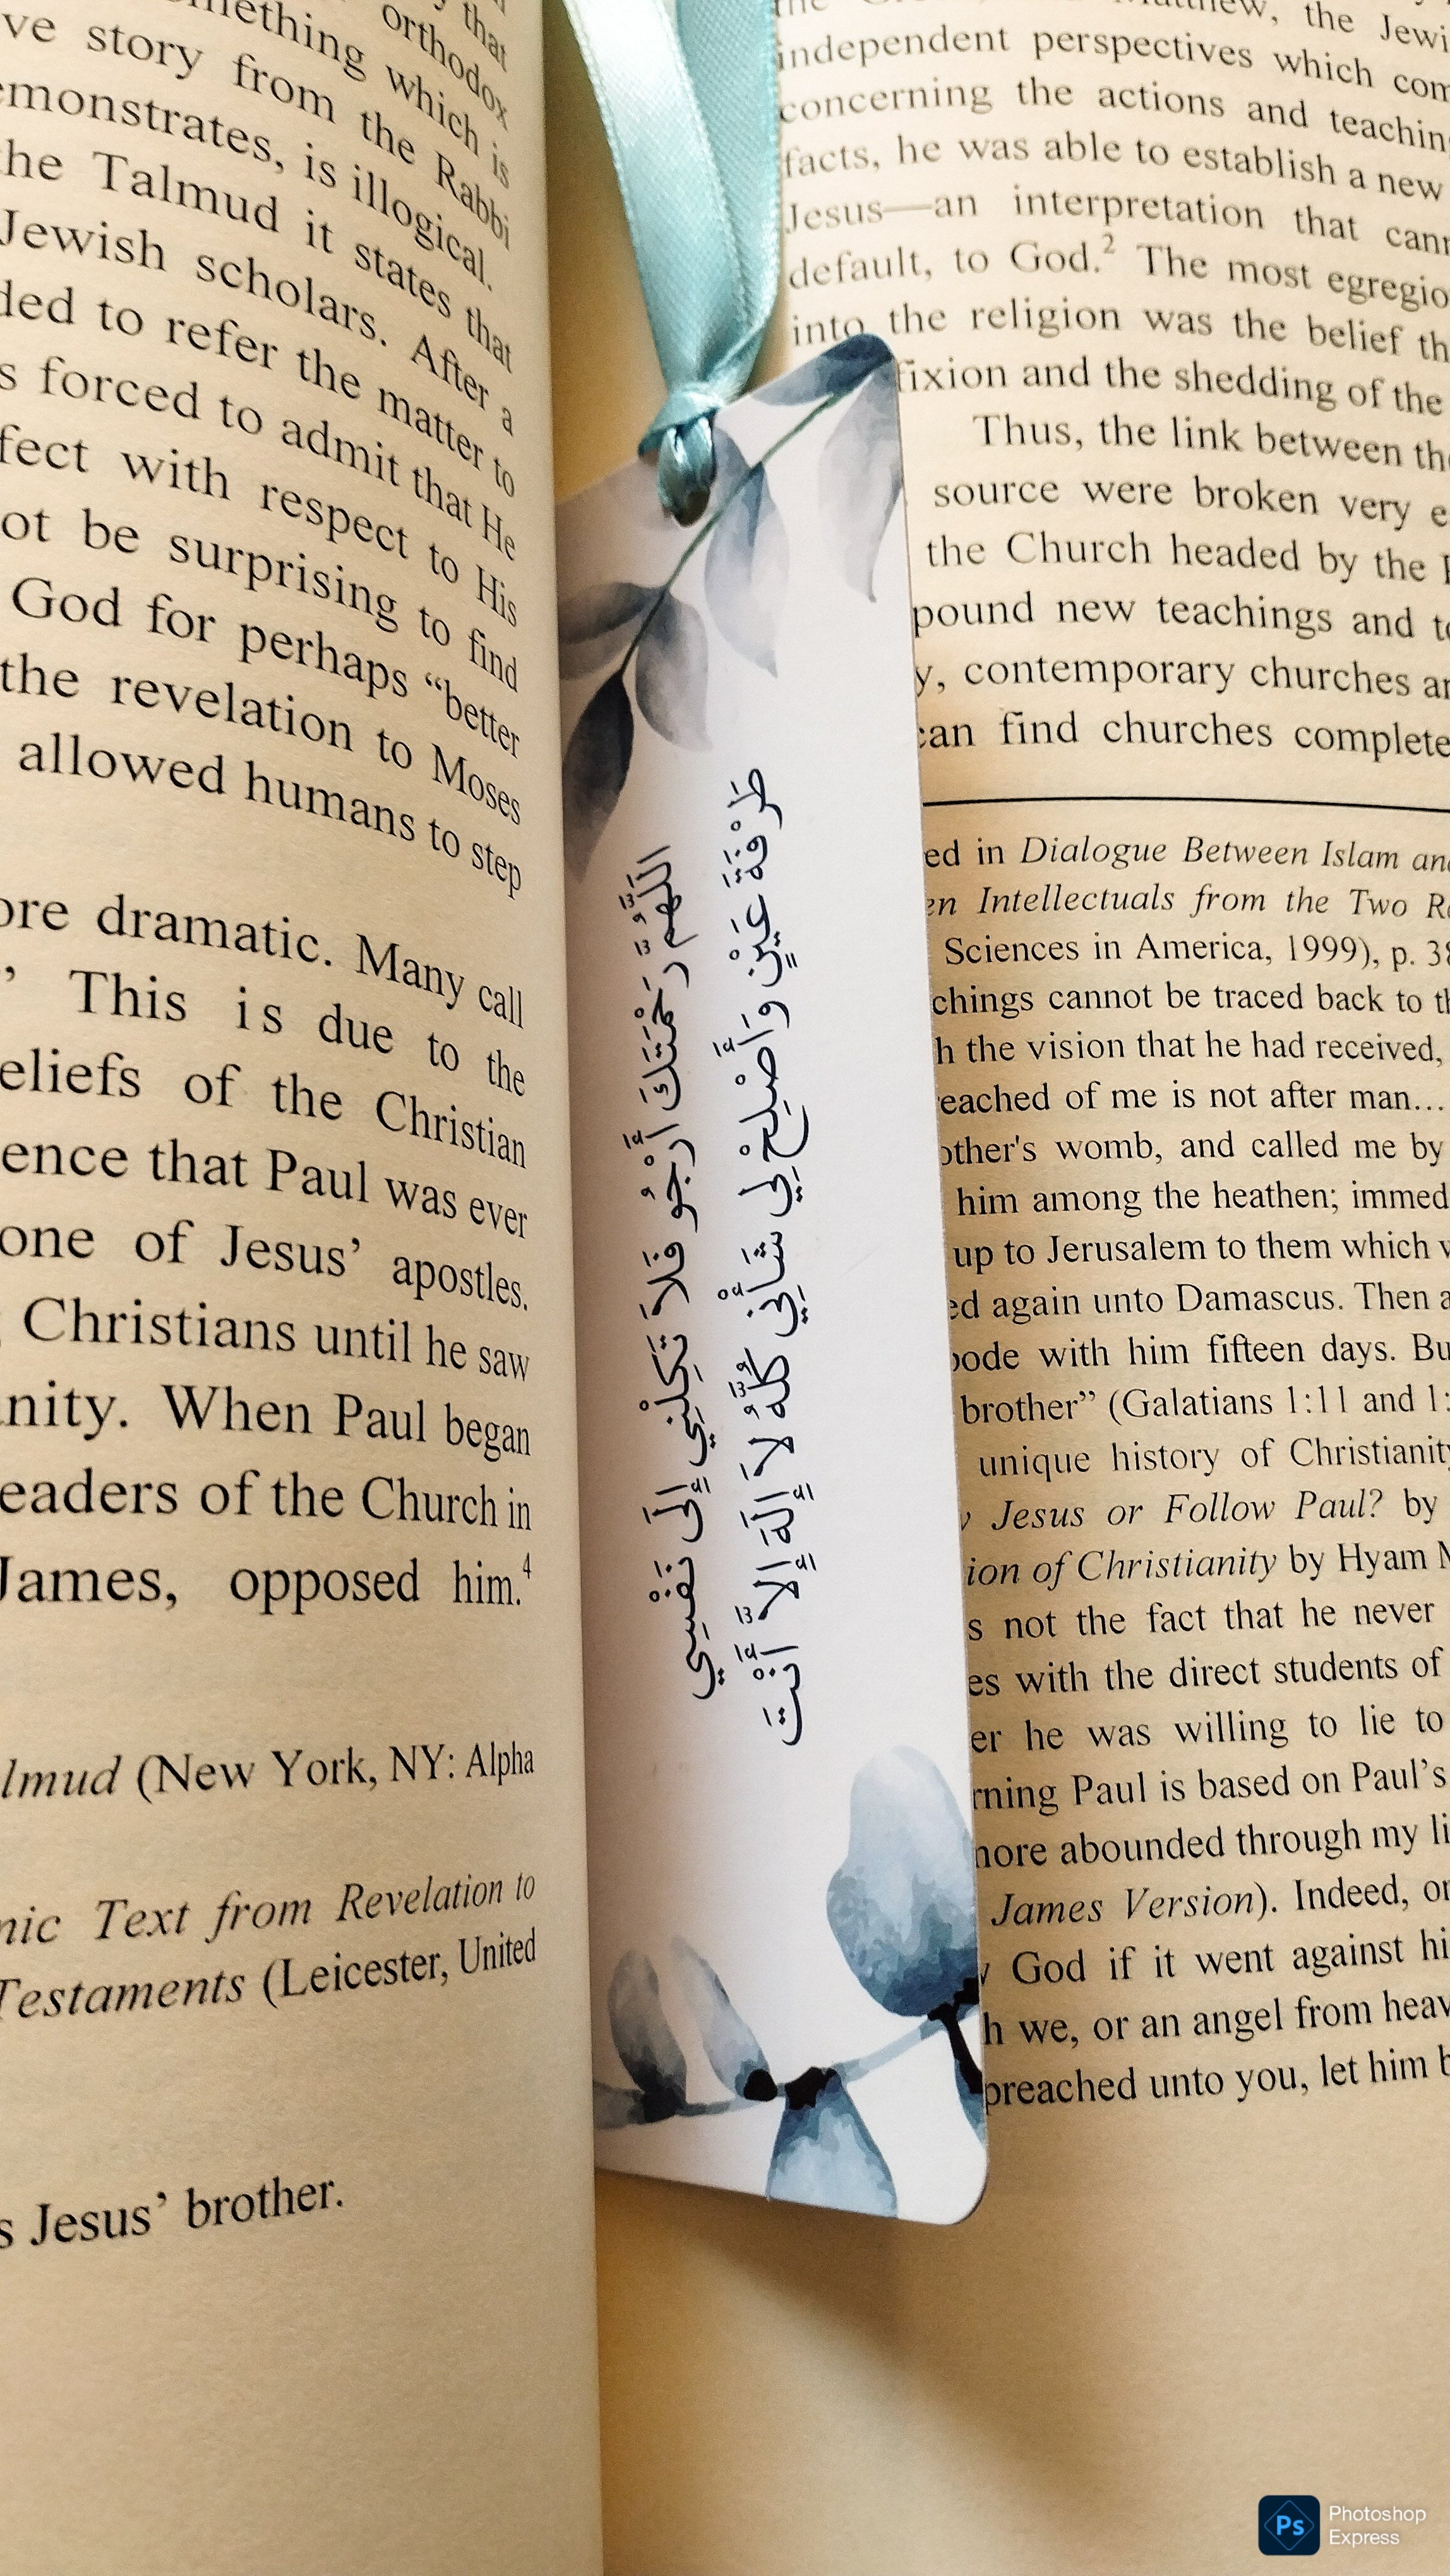 that
orthodox
mething which is
ve story from the Rabbi
emonstrates, is illogical.
the Talmud it states that
Jewish scholars. After a
ded to refer the matter to
s forced to admit that He
fect with respect to His
ot be surprising to find
God for perhaps “better
the revelation to Moses
allowed humans to step
ore dramatic. Many call
’ This is due to the
eliefs of the Christian
ence that Paul was ever
one of Jesus’ apostles.
Christians until he saw
nity. When Paul began
eaders of the Church in
James, opposed him.4
lmud (New York, NY: Alpha
nic Text from Revelation to
Testaments (Leicester, United
s Jesus’ brother.
اللَّهُمَّ رَحْمَتَكَ أَرْجُو فَلَا تَكِلْنِي إِلَى نَفْسِي
طَرْفَةَ عَيْنٍ وَأَصْلِحْ لِي شَأْنِي كُلَّهُ لَا إِلَهَ إِلَّا أَنْتَ
the Jewi
independent perspectives which com
concerning the actions and teaching
facts, he was able to establish a new
Jesus—an interpretation that cann
default, to God.2 The most egregio
into the religion was the belief th
fixion and the shedding of the
Thus, the link between the
source were broken very e
the Church headed by the
pound new teachings and to
y, contemporary churches ar
can find churches complete
ed in Dialogue Between Islam and
en Intellectuals from the Two Re
Sciences in America, 1999), p. 38
chings cannot be traced back to th
h the vision that he had received,
eached of me is not after man...
other's womb, and called me by
him among the heathen; immed
up to Jerusalem to them which w
ed again unto Damascus. Then a
bode with him fifteen days. Bu
brother” (Galatians 1:11 and 1:
unique history of Christianity
Jesus or Follow Paul? by
ion of Christianity by Hyam M
s not the fact that he never
es with the direct students of
er he was willing to lie to
rning Paul is based on Paul’s
more abounded through my li
James Version). Indeed, or
God if it went against hi
h we, or an angel from heav
preached unto you, let him b
Ps Photoshop
Express